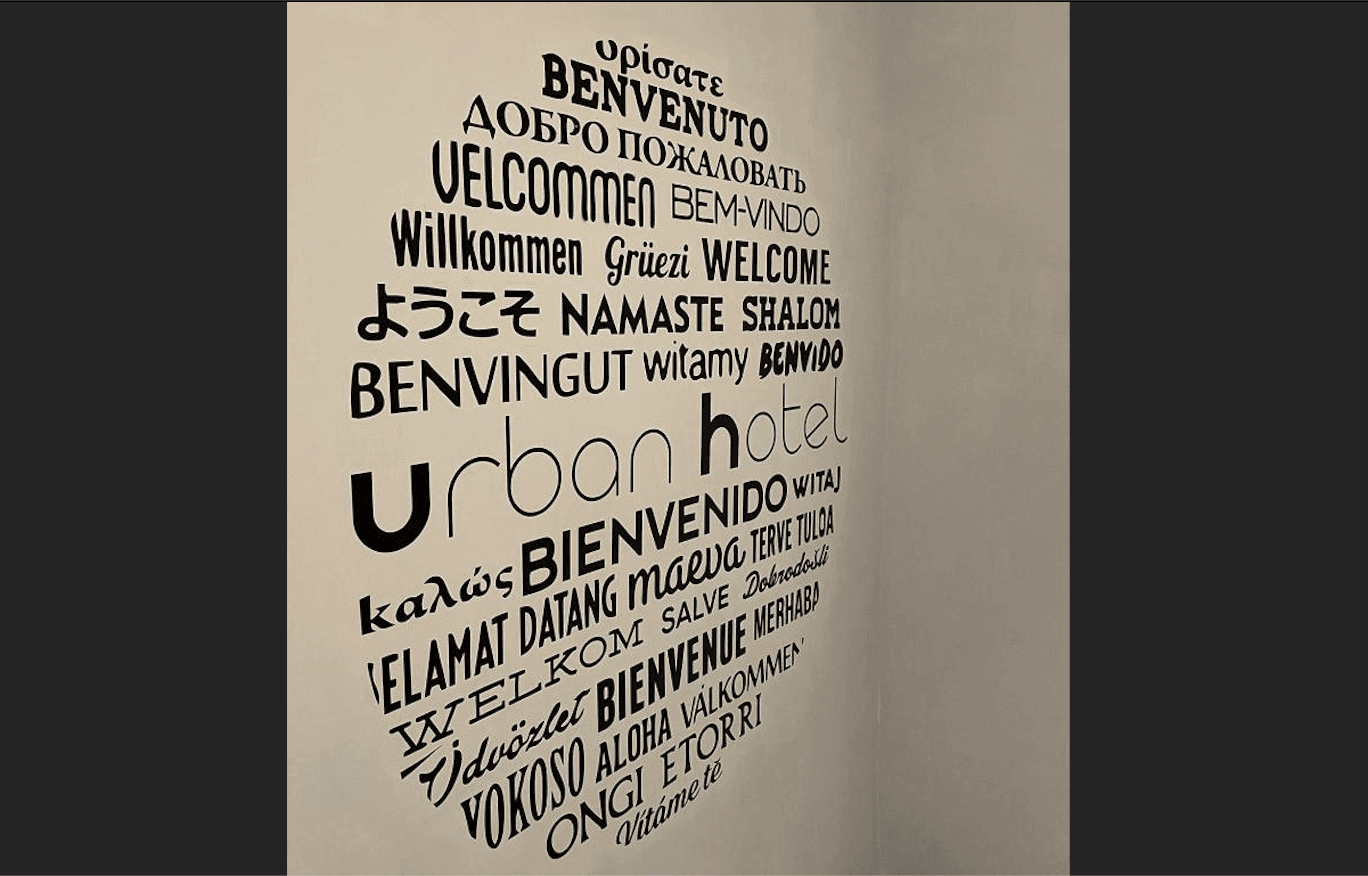 ορίσατε
BENVENUTO
ДОБРО ПОЖАЛОВАТЬ
VELCOMMEN BEM-VINDO
Willkommen Grüezi WELCOME
ようこそ NAMASTE SHALOM
BENVINGUT witamy BENVIDO
urban hotel
καλώς BIENVENIDO WITAJ
SELAMAT DATANG maeva TERVE TULOA
WELKOM SALVE Dobrodošli
Üdvözlet BIENVENUE MERHABA
YOKOSO ALOHA VÄLKOMMEN
ONGI ETORRI
Vítáme tě